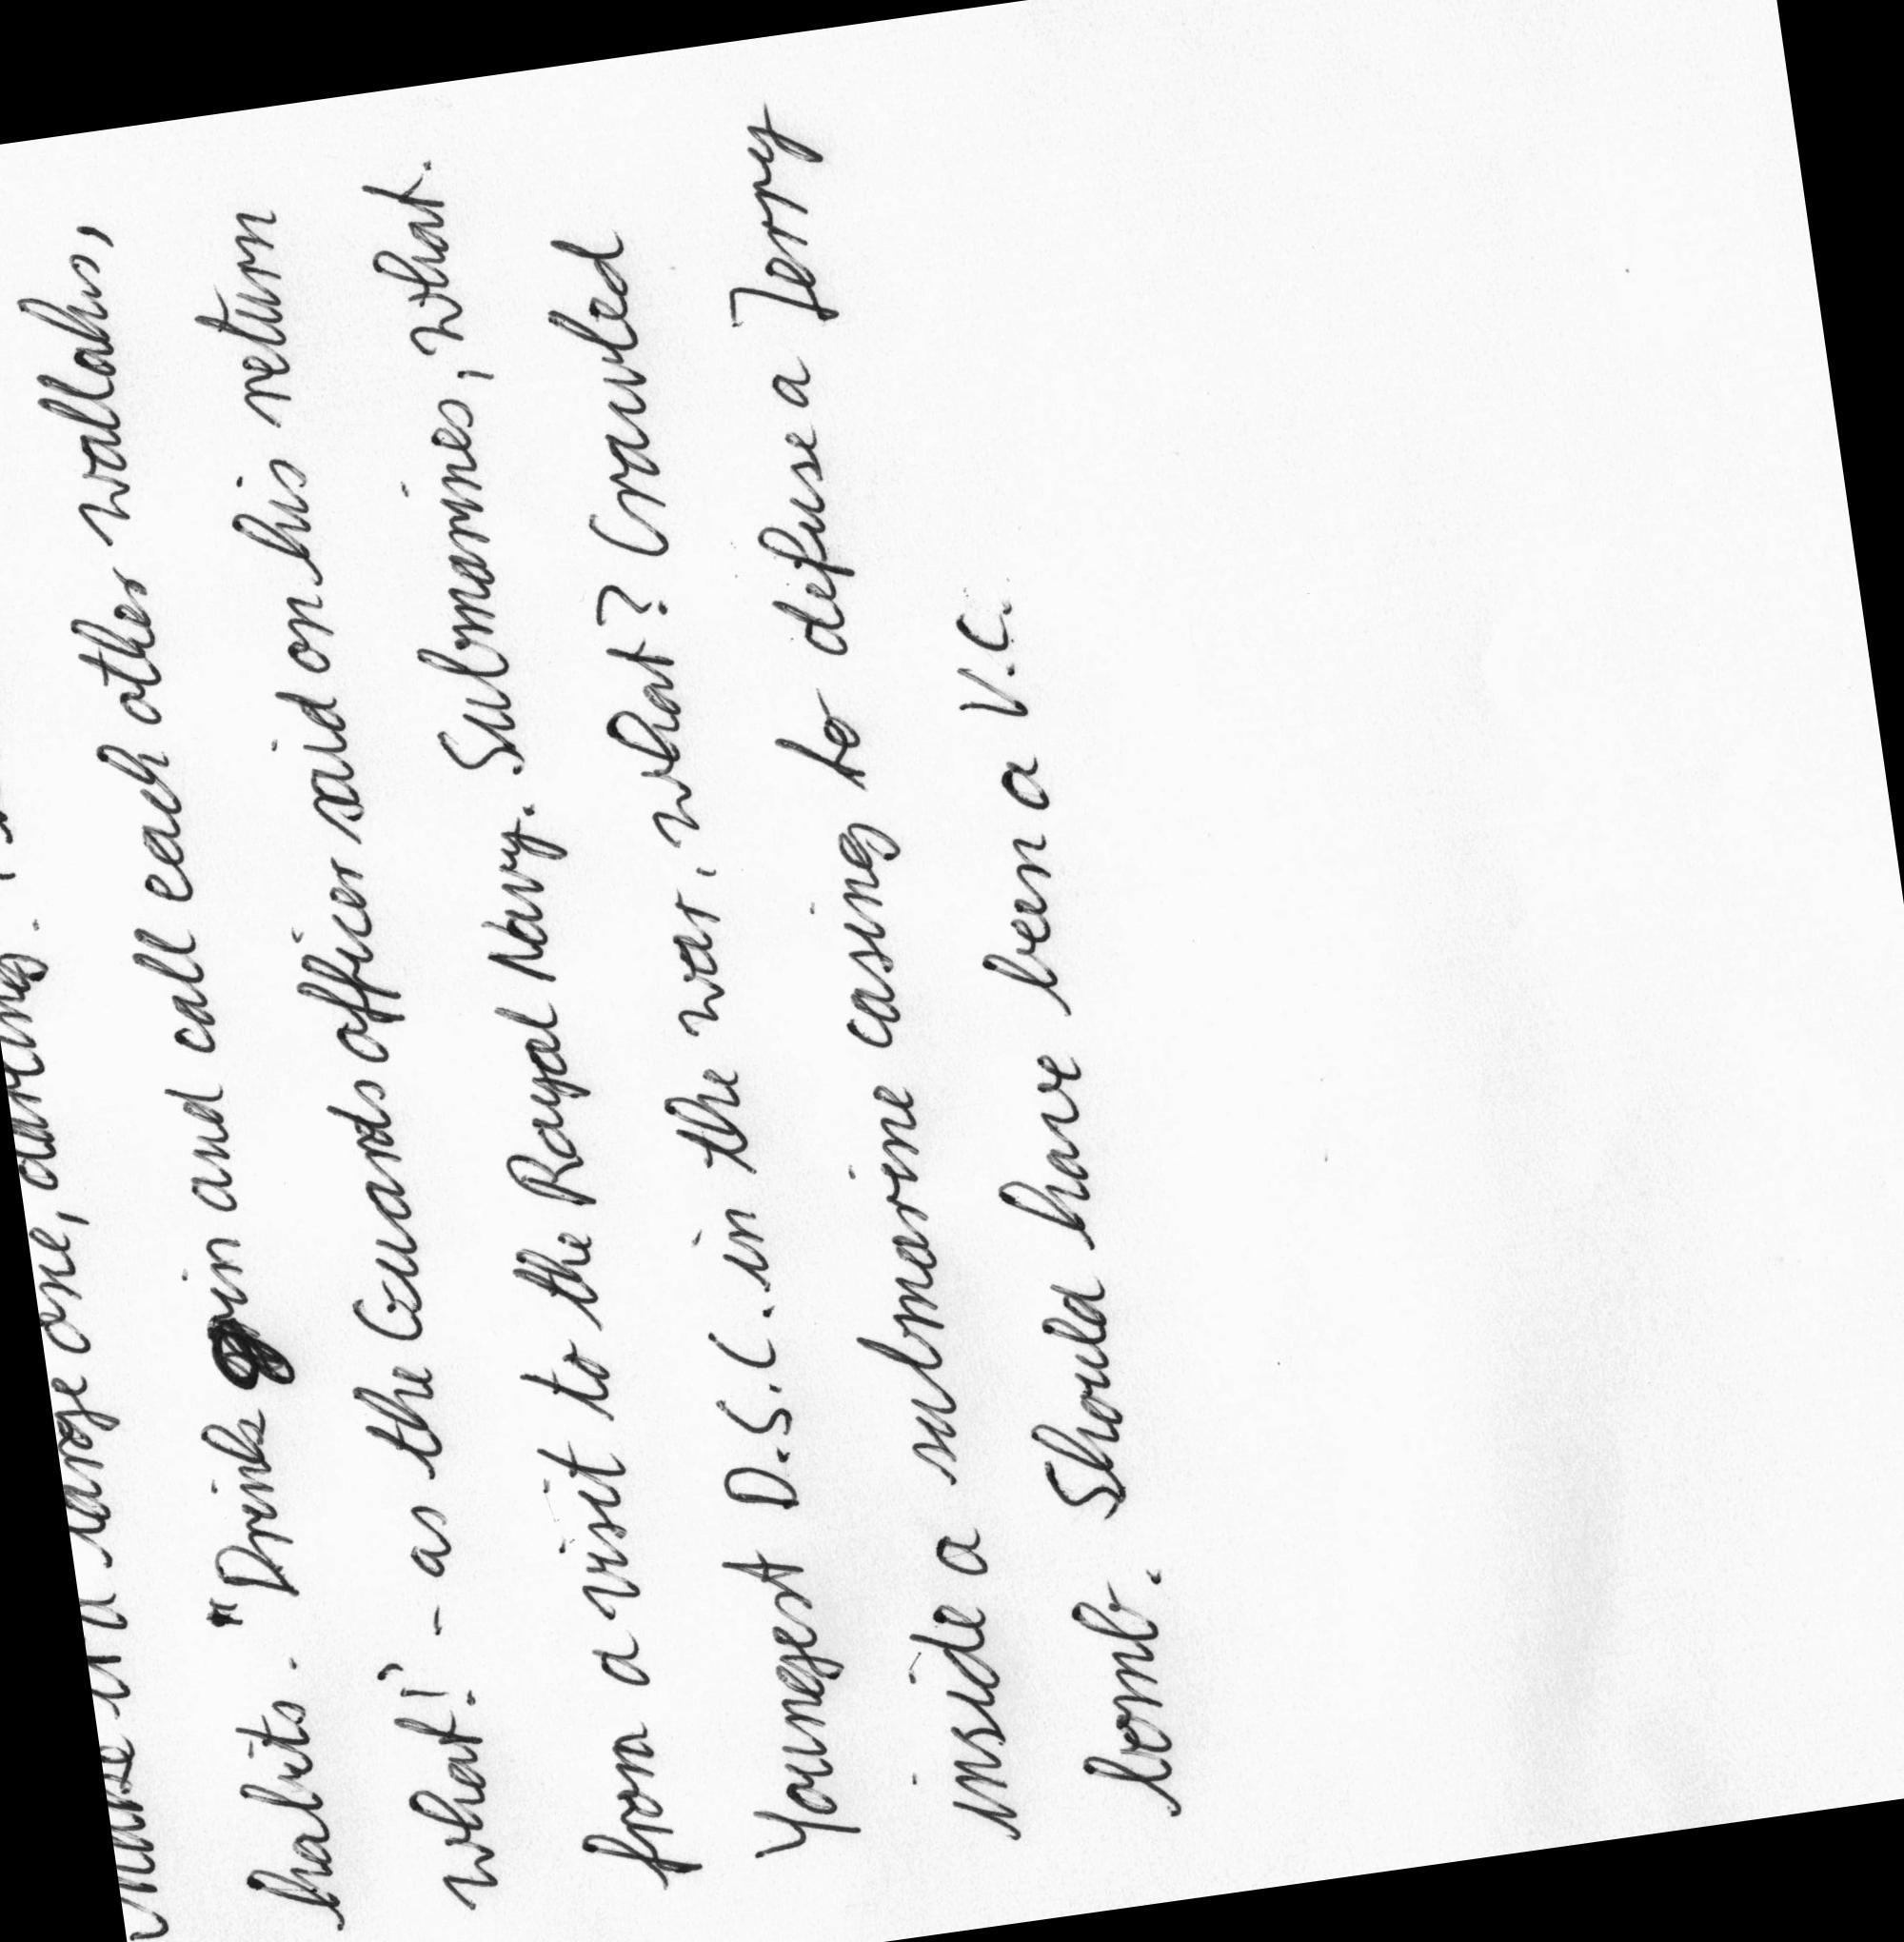 Make it a large one, darling.
habits. "Drink gin and call each other wallahs,
what!" - as the Guards officer said on his return
from a visit to the Royal Navy. Submarines, what.
Youngest D.S.C. in the war, what? Crawled
inside a submarine casing to defuse a Jerry
bomb. Should have been a V.C.